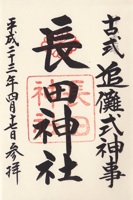 古式 追儺式神事
長田神社
平成二十三年四月十七日参拝